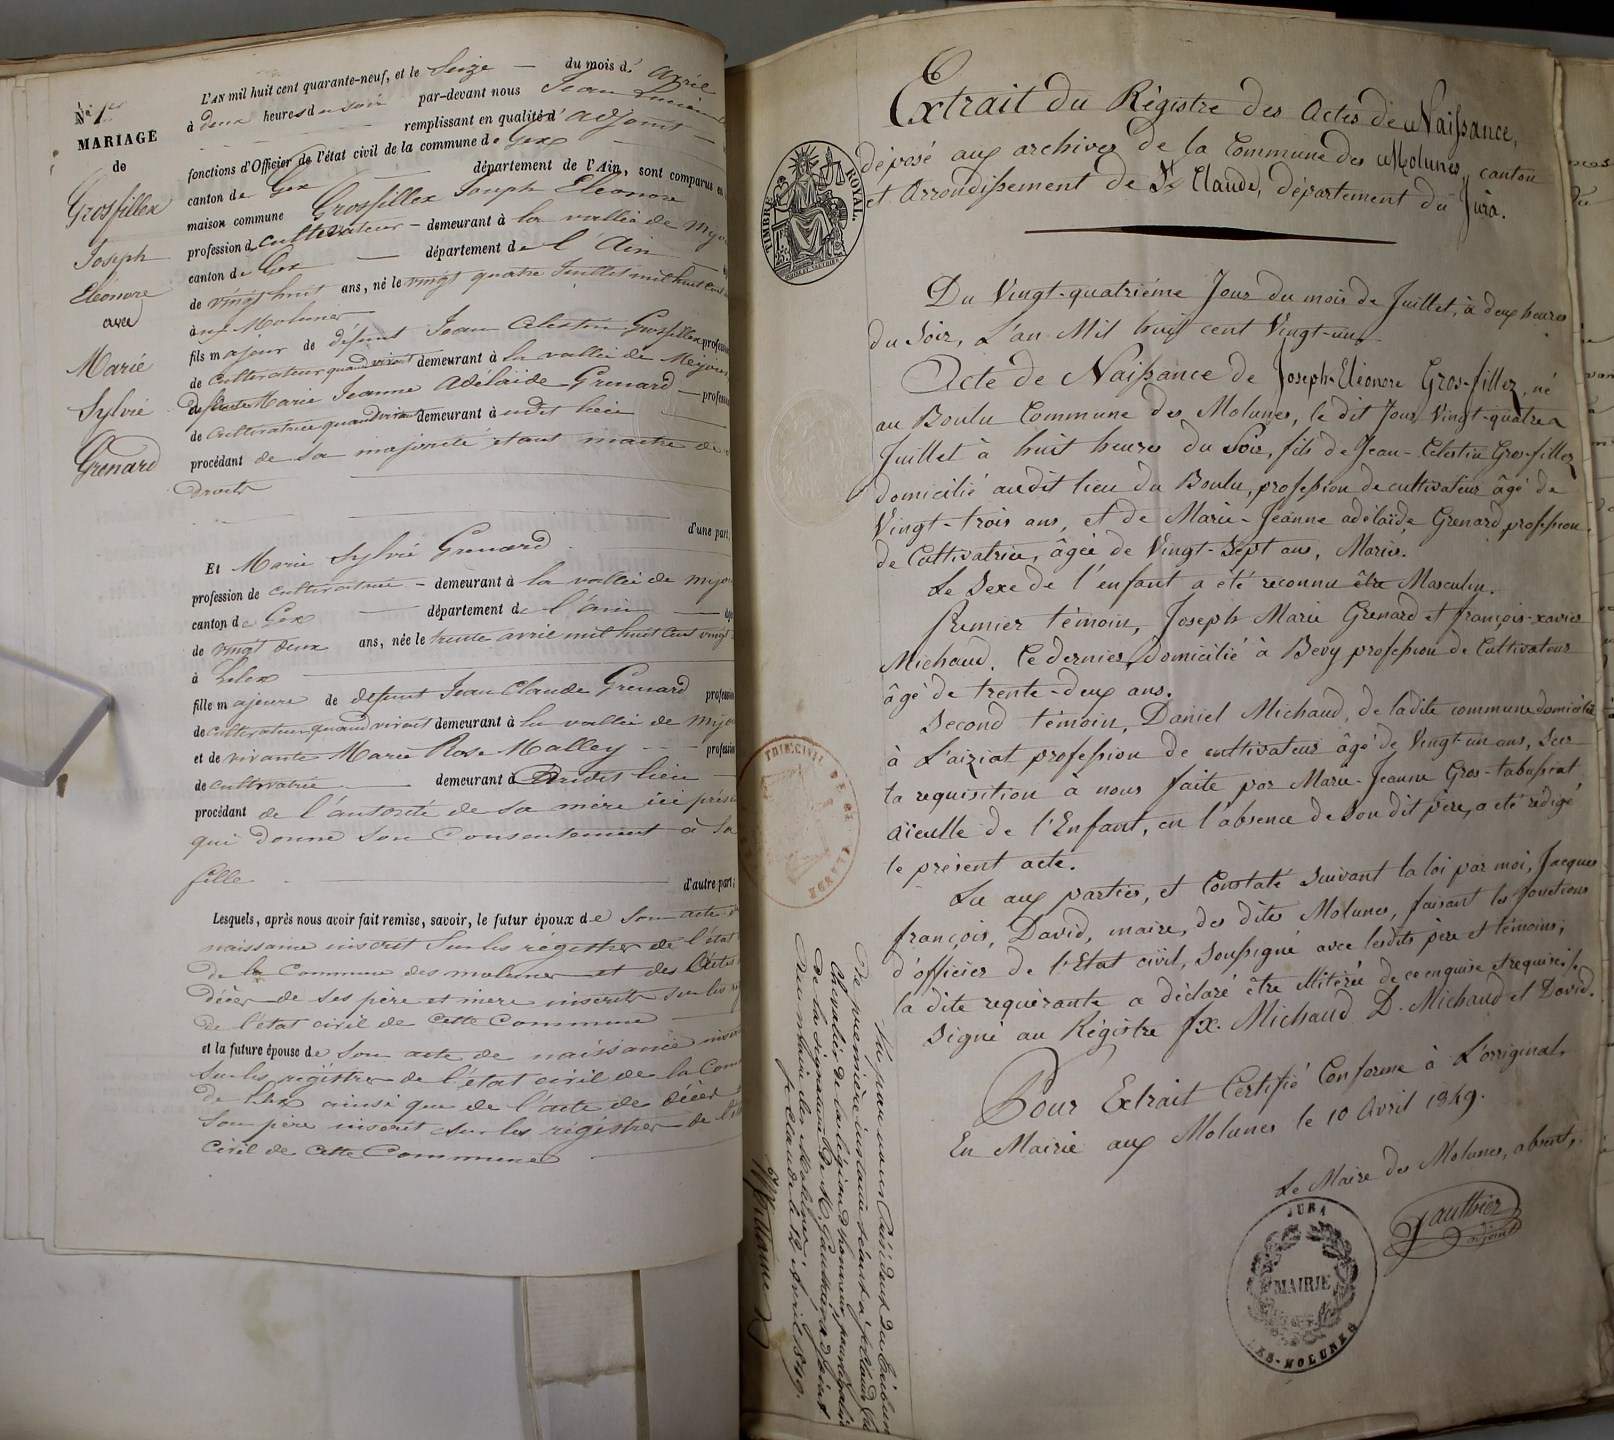 N° 1er
MARIAGE
de
Grosfillex
Joseph
Eléonore
avec
Marie
Sylvie
Grenard
L'AN mil huit cent quarante-neuf, et le Seize du mois d' avril
à deux heures du soir par-devant nous Jean
remplissant en qualité d'adjoint
fonctions d'Officier de l'état civil de la commune de Gex
canton de Gex département de l'Ain, sont comparus en
maison commune Grosfillex Joseph Eléonore
profession de cultivateur demeurant à la vallée de Mijo
canton de Gex département de l'Ain
de vingt huit ans, né le vingt quatre Juillet mil huit cent
aux Molunes
fils majeur de défunt Jean Célestin Grosfillex profession
de Cultivateur quand vivait demeurant à la vallée de Mijoux
de défunte Marie Jeanne Adélaïde Grenard profession
de cultivatrice quand vivait demeurant à udit lieu
procédant de sa majorité étant maître de
droits
d'une part,
Et Marie Sylvie Grenard
profession de cultivatrice demeurant à la vallée de Mijo
canton de Gex département de l'ain
de vingt deux ans, née le trente avril mil huit cent vingt
à Lelex
fille majeure de défunt Jean Claude Grenard profession
de cultivateur quand vivait demeurant à la vallée de Mijo
et de vivante Marie Rose Malley profession
de cultivatrice demeurant audit lieu
procédant de l'autorité de sa mère ici prés
qui donne son Consentement à sa
fille d'autre part;
Lesquels, après nous avoir fait remise, savoir, le futur époux de Son acte d
naissance inscrit Sur les régistres de l'état
de la Commune des molunes et des Actes
décès de ses père et mère inscrits sur les
de l'état civil de cette Commune
et la future épouse de Son acte de naissance
Sur les registres de l'état civil de la Com
de Lelex ainsi que de l'acte de décès
son père inscrit sur les régistres de l'
Civil de Cette Commune
Extrait du Régistre des Actes de Naissance,
déposé aux archives de la Commune des Molunes, canton
et Arrondissement de St Claude, département du Jura.
TIMBRE ROYAL.
Du Vingt-quatrième Jour du mois de Juillet, à deux heures
du Soir, L'an Mil huit cent Vingt-un.
Acte de Naissance de Joseph-Eléonore Gros-fillez, né
au Boulu Commune des Molunes, le dit Jour Vingt-quatre
Juillet à huit heures du Soir, fils de Jean-Célestin Gros-fillez
domicilié audit lieu du Boulu, profession de cultivateur âgé de
Vingt-trois ans, et de Marie-Jeanne adelaïde Grenard, profession
de Cultivatrice, âgée de Vingt-Sept ans, Mariés.
Le Sexe de l'enfant a été reconnu être Masculin.
Premier témoin, Joseph Marie Grenard et françois-xavier
Michaud, Ce dernier, domicilié à Bevy profession de Cultivateur
âgé de trente-deux ans.
Second témoin, Daniel Michaud, de ladite commune domicilié
à L'aiziat profession de cultivateur âgé de Vingt-un ans, Sur
la requisition à nous faite par Marie-Jeanne Gros-tabussiat
aïeulle de l'Enfant, en l'absence de Son dit père, a été rédigé
le présent acte.
Lu aux parties, et Constaté Suivant la loi par moi, Jacques
françois, David, maire, des dites Molunes, faisant les fonctions
d'officier de l'Etat civil, Soussigné avec lesdits père et témoins;
la dite requérante a déclaré être illitérée de ce enquise et requise.
Signé au Régistre fx. Michaud D. Michaud et David.
Pour Extrait Certifié Conforme à L'original.
En Mairie aux Molunes le 10 Avril 1849.
Le Maire des Molunes, absent,
Gauthier
adjoint
JURA
MAIRIE
LES-MOLUNES
Vu par nous Président du tribunal
de première instance séant à St Claude
Chevalier de la légion d'honneur, pour légalisation
de la signature de M. Gauthier adjoint
au maire des Molunes
St Claude le 12 avril 1849.